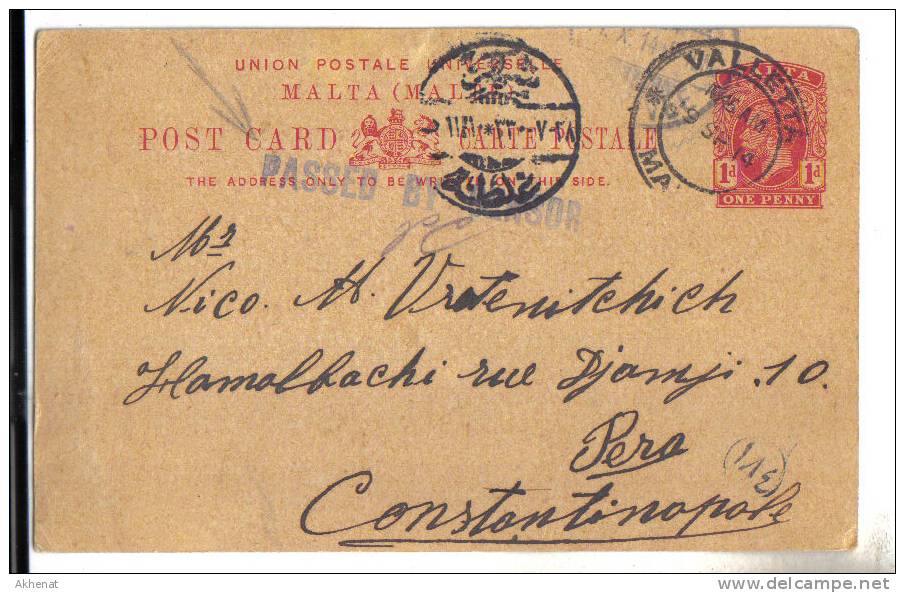 UNION POSTALE UNIVERSELLE
MALTA (MALTE)
POST CARD CARTE POSTALE
THE ADDRESS ONLY TO BE WRITTEN ON THIS SIDE.
VALLETTA
MALTA
1d 1d
ONE PENNY
PASSED BY CENSOR
Mr
Nico. M. Vratenitchich
Hamalbachi rue Djamji 10
Pera
Constantinopole
Akhenat
www.delcampe.net